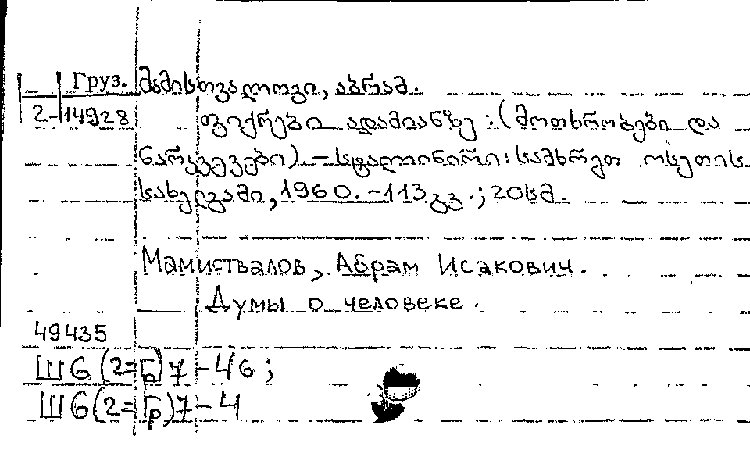 Груз. მამისთვალოვი, აბრამ.
2-14928 ფიქრები ადამიანზე : (მოთხრობები და
ნარკვევები) – სტალინირი: სამხრეთ ოსეთის
სახელგამი, 1960. - 113გვ. ; 20სმ.
Мамиствалов, Абрам Исакович.
Думы о человеке.
49435
Ш6(2=Гр)7-46;
Ш6(2=Гр)7-4